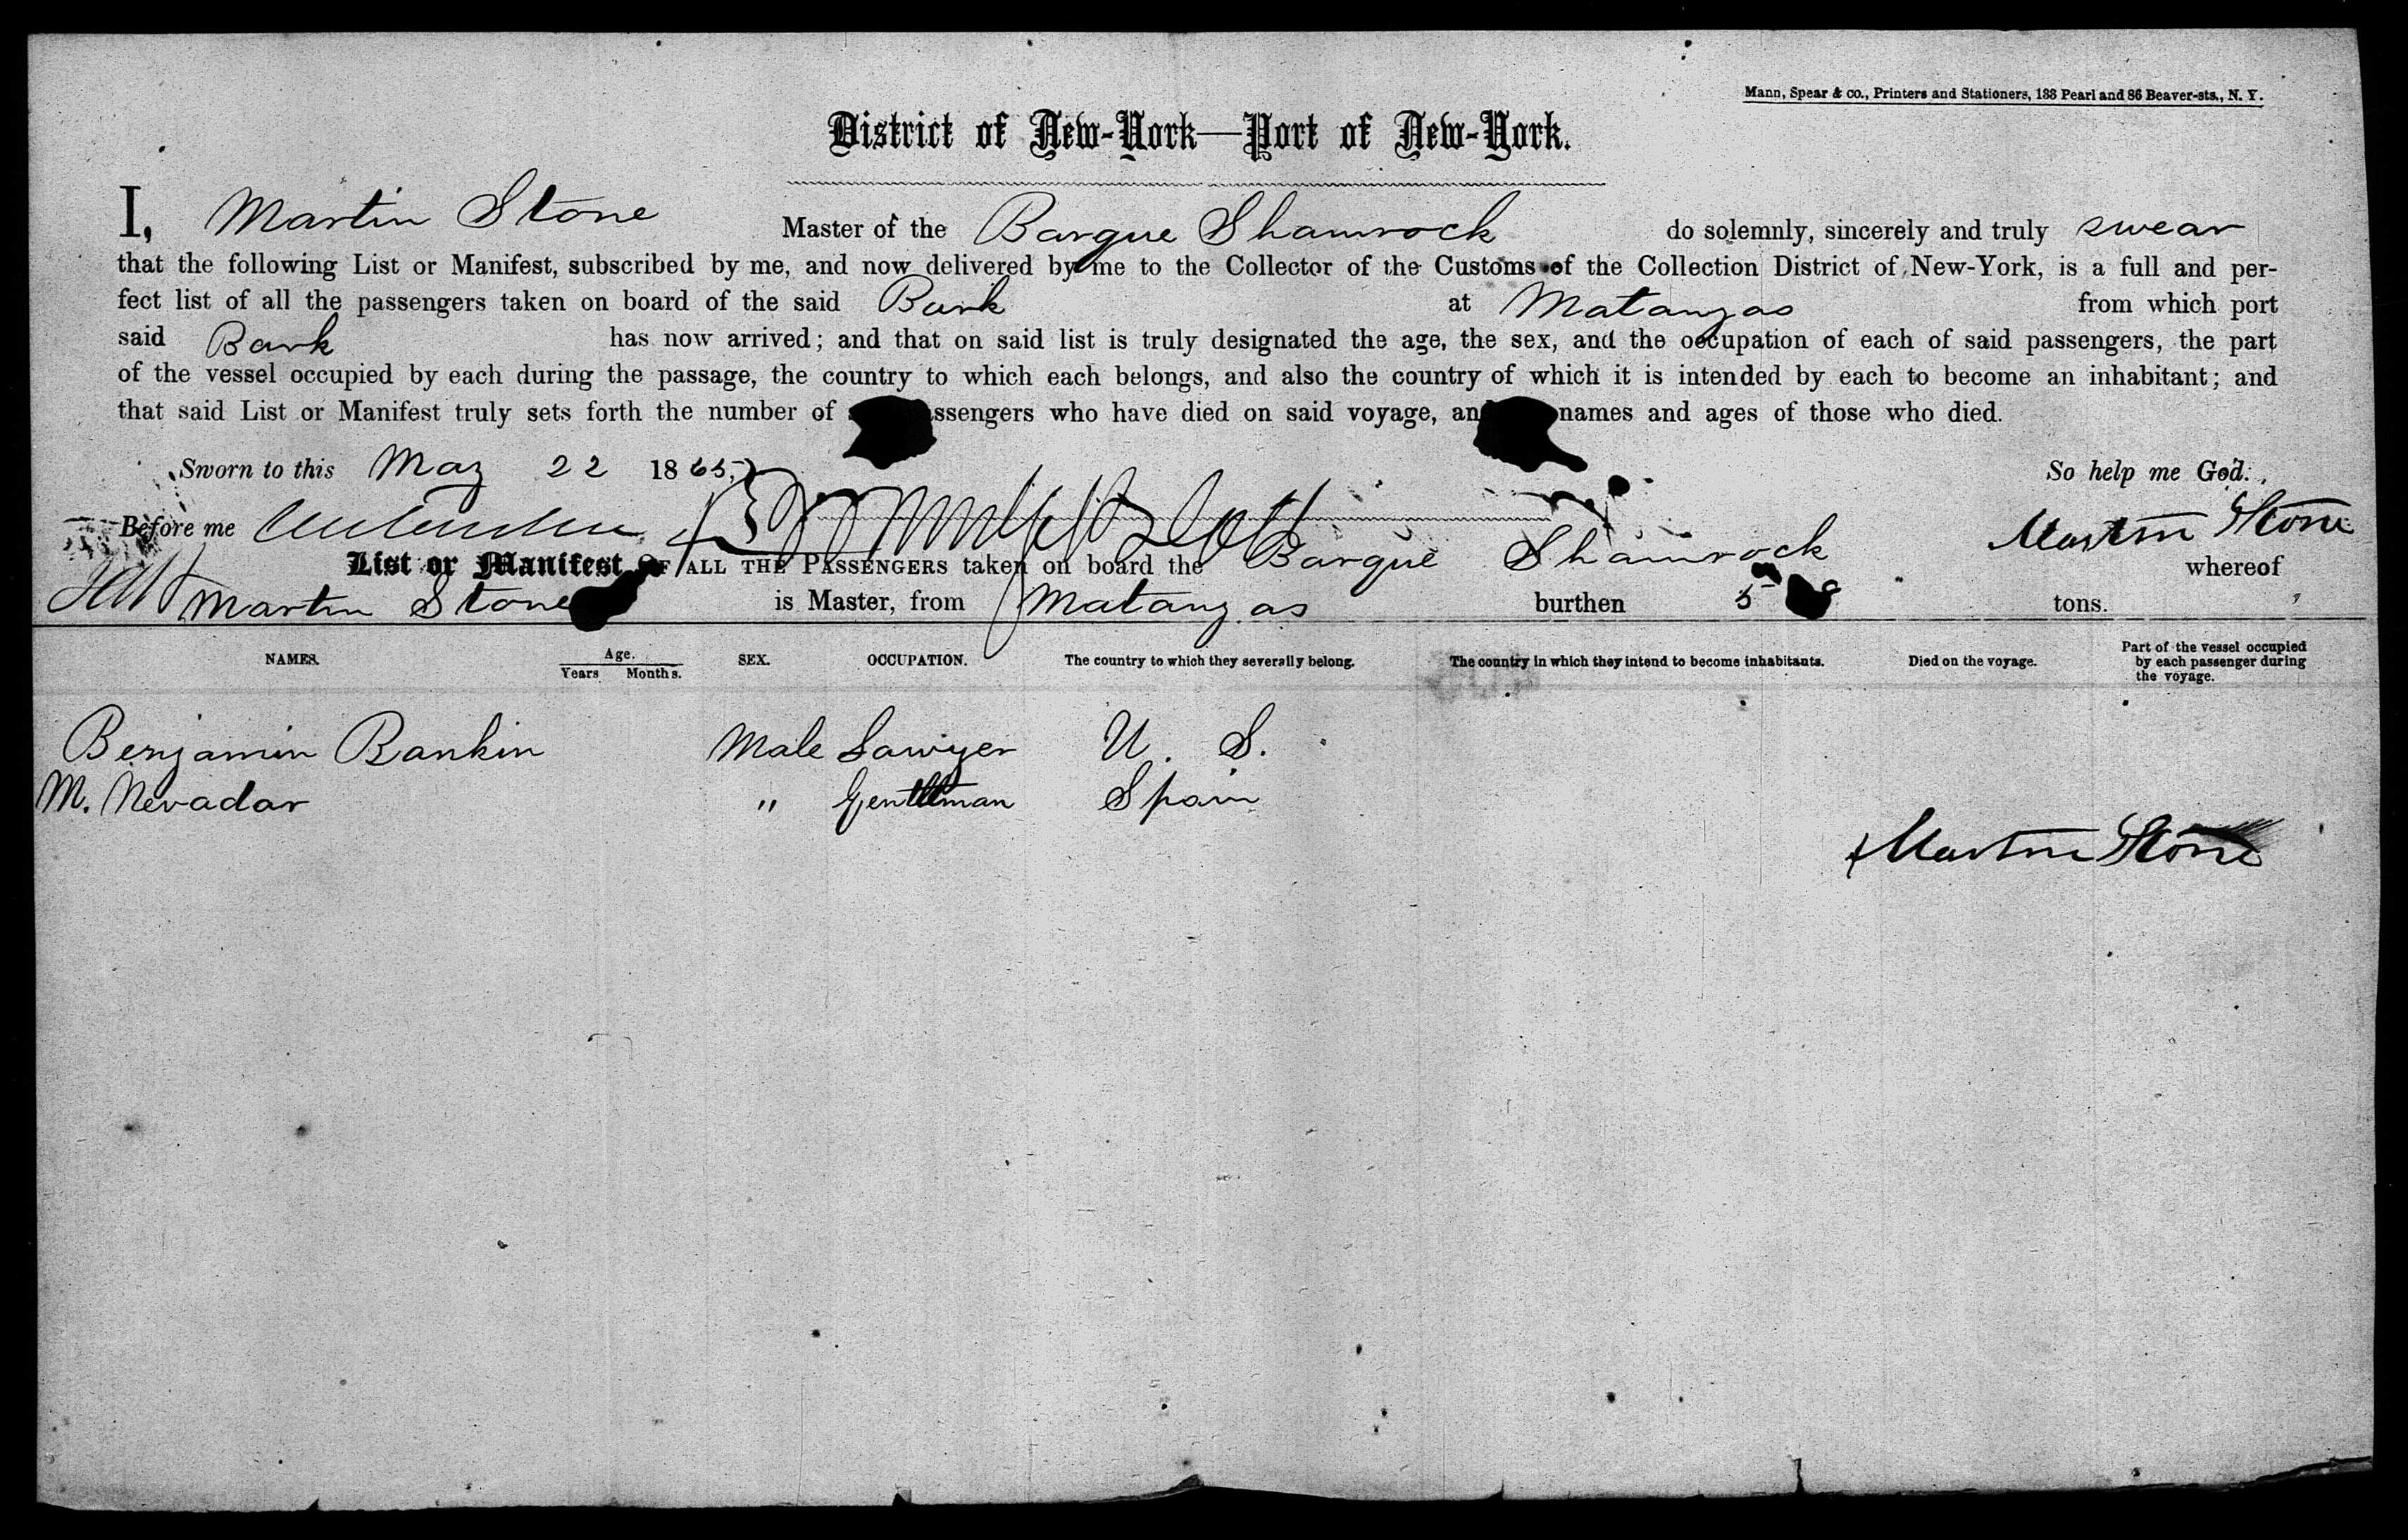 Mann, Spear & co., Printers and Stationers, 133 Pearl and 86 Beaver-sts., N. Y.
District of New-York—Port of New-York.
I, Martin Stone Master of the Barque Shamrock do solemnly, sincerely and truly swear
that the following List or Manifest, subscribed by me, and now delivered by me to the Collector of the Customs of the Collection District of New-York, is a full and per-
fect list of all the passengers taken on board of the said Bark at Matanzas from which port
said Bark has now arrived; and that on said list is truly designated the age, the sex, and the occupation of each of said passengers, the part
of the vessel occupied by each during the passage, the country to which each belongs, and also the country of which it is intended by each to become an inhabitant; and
that said List or Manifest truly sets forth the number of ssengers who have died on said voyage, an names and ages of those who died.
Sworn to this May 22 1865, So help me God.
Before me Martin Stone
List or Manifest OF ALL THE PASSENGERS taken on board the Barque Shamrock whereof
Martin Stone is Master, from Matanzas burthen tons.
NAMES. Age. Years Months. SEX. OCCUPATION. The country to which they severally belong. The country in which they intend to become inhabitants. Died on the voyage. Part of the vessel occupied by each passenger during the voyage.
Benjamin Rankin Male Sawyer U. S.
M. Nevadar " Gentleman Spain
Martin Stone